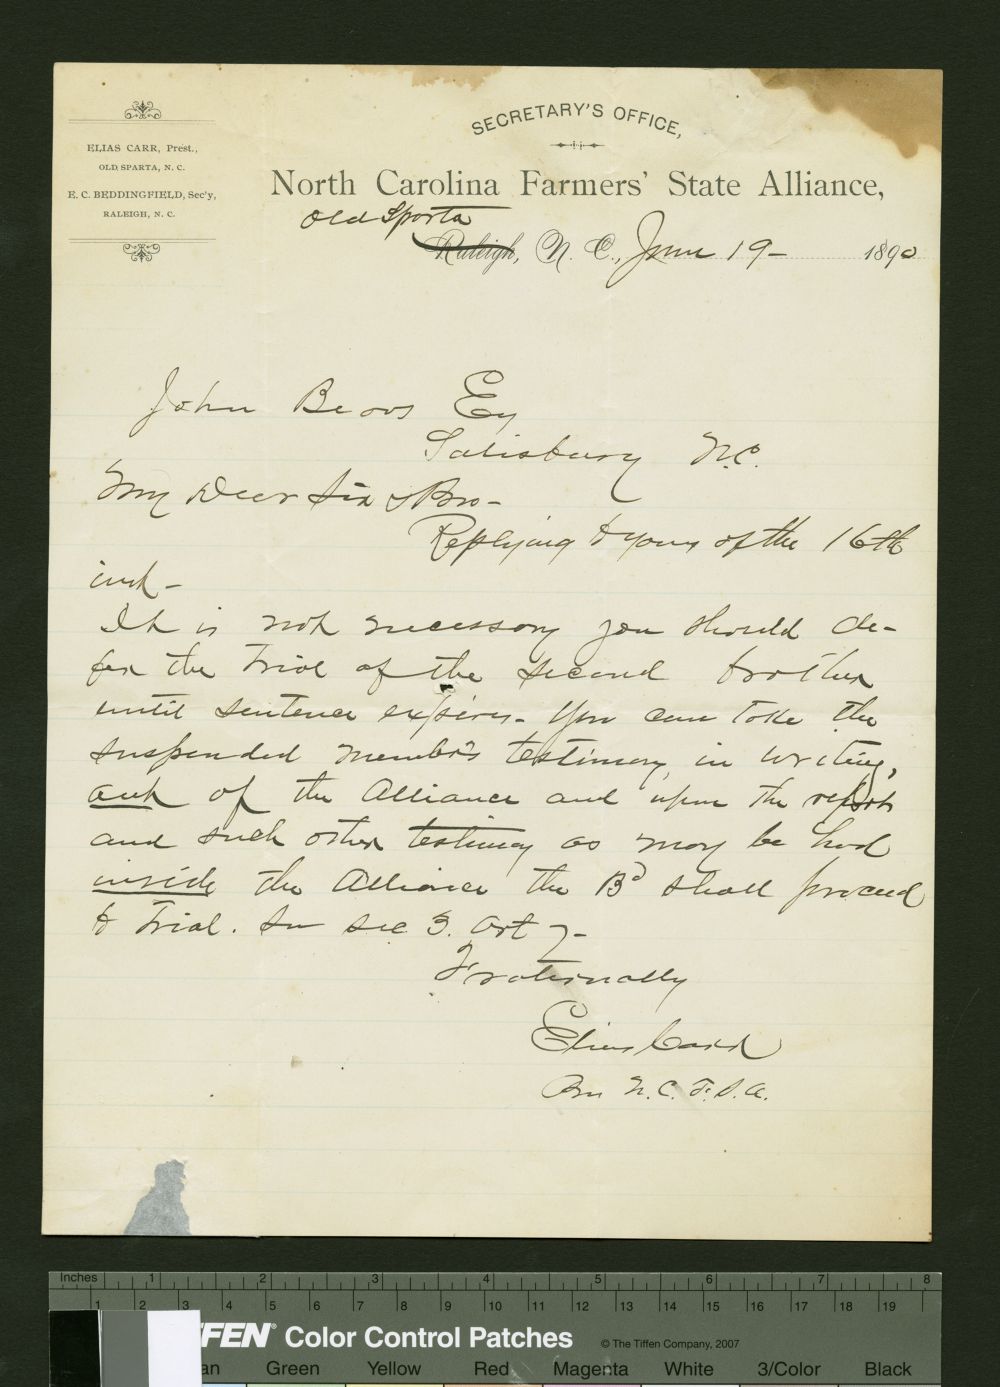 SECRETARY'S OFFICE,
ELIAS CARR, Prest.,
OLD SPARTA, N. C.
E. C. BEDDINGFIELD, Sec'y,
RALEIGH, N. C.
North Carolina Farmers' State Alliance,
Old Sparta
Raleigh, N. C., June 19- 1890
John Beard Esq
Salisbury N.C.
My Dear Sir & Bro-
Replying to yours of the 16th
inst-
It is not necessary you should de-
fer the Trial of the second brother
until sentence expires- You can take the
suspended member's testimony, in writing,
out of the Alliance and upon the report
and such other testimony as may be had
inside the Alliance the Bd shall proceed
to Trial. See sec 3. Art 7-
Fraternally
Elias Carr
Pres N.C. F.S.A.
Inches 1 2 3 4 5 6 7 8
1 2 3 4 5 6 7 8 9 10 11 12 13 14 15 16 17 18 19
FFEN® Color Control Patches © The Tiffen Company, 2007
an Green Yellow Red Magenta White 3/Color Black